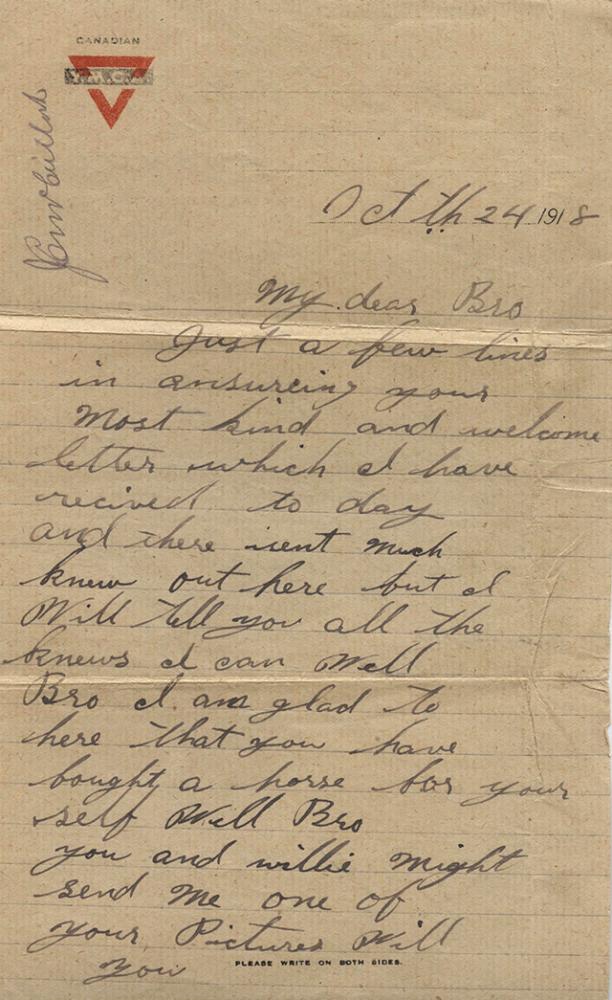 CANADIAN
Y.M.C.A.
Oct th 24 1918
My dear Bro
Just a few lines
in ansureing your
Most kind and welcome
letter which I have
recived to day
and there isent much
knew out here but I
Will tell you all the
knews I can Well
Bro I am glad to
here that you have
bought a horse for your
self Well Bro
you and willie might
send me one of
your Pictures Will
you
PLEASE WRITE ON BOTH SIDES.